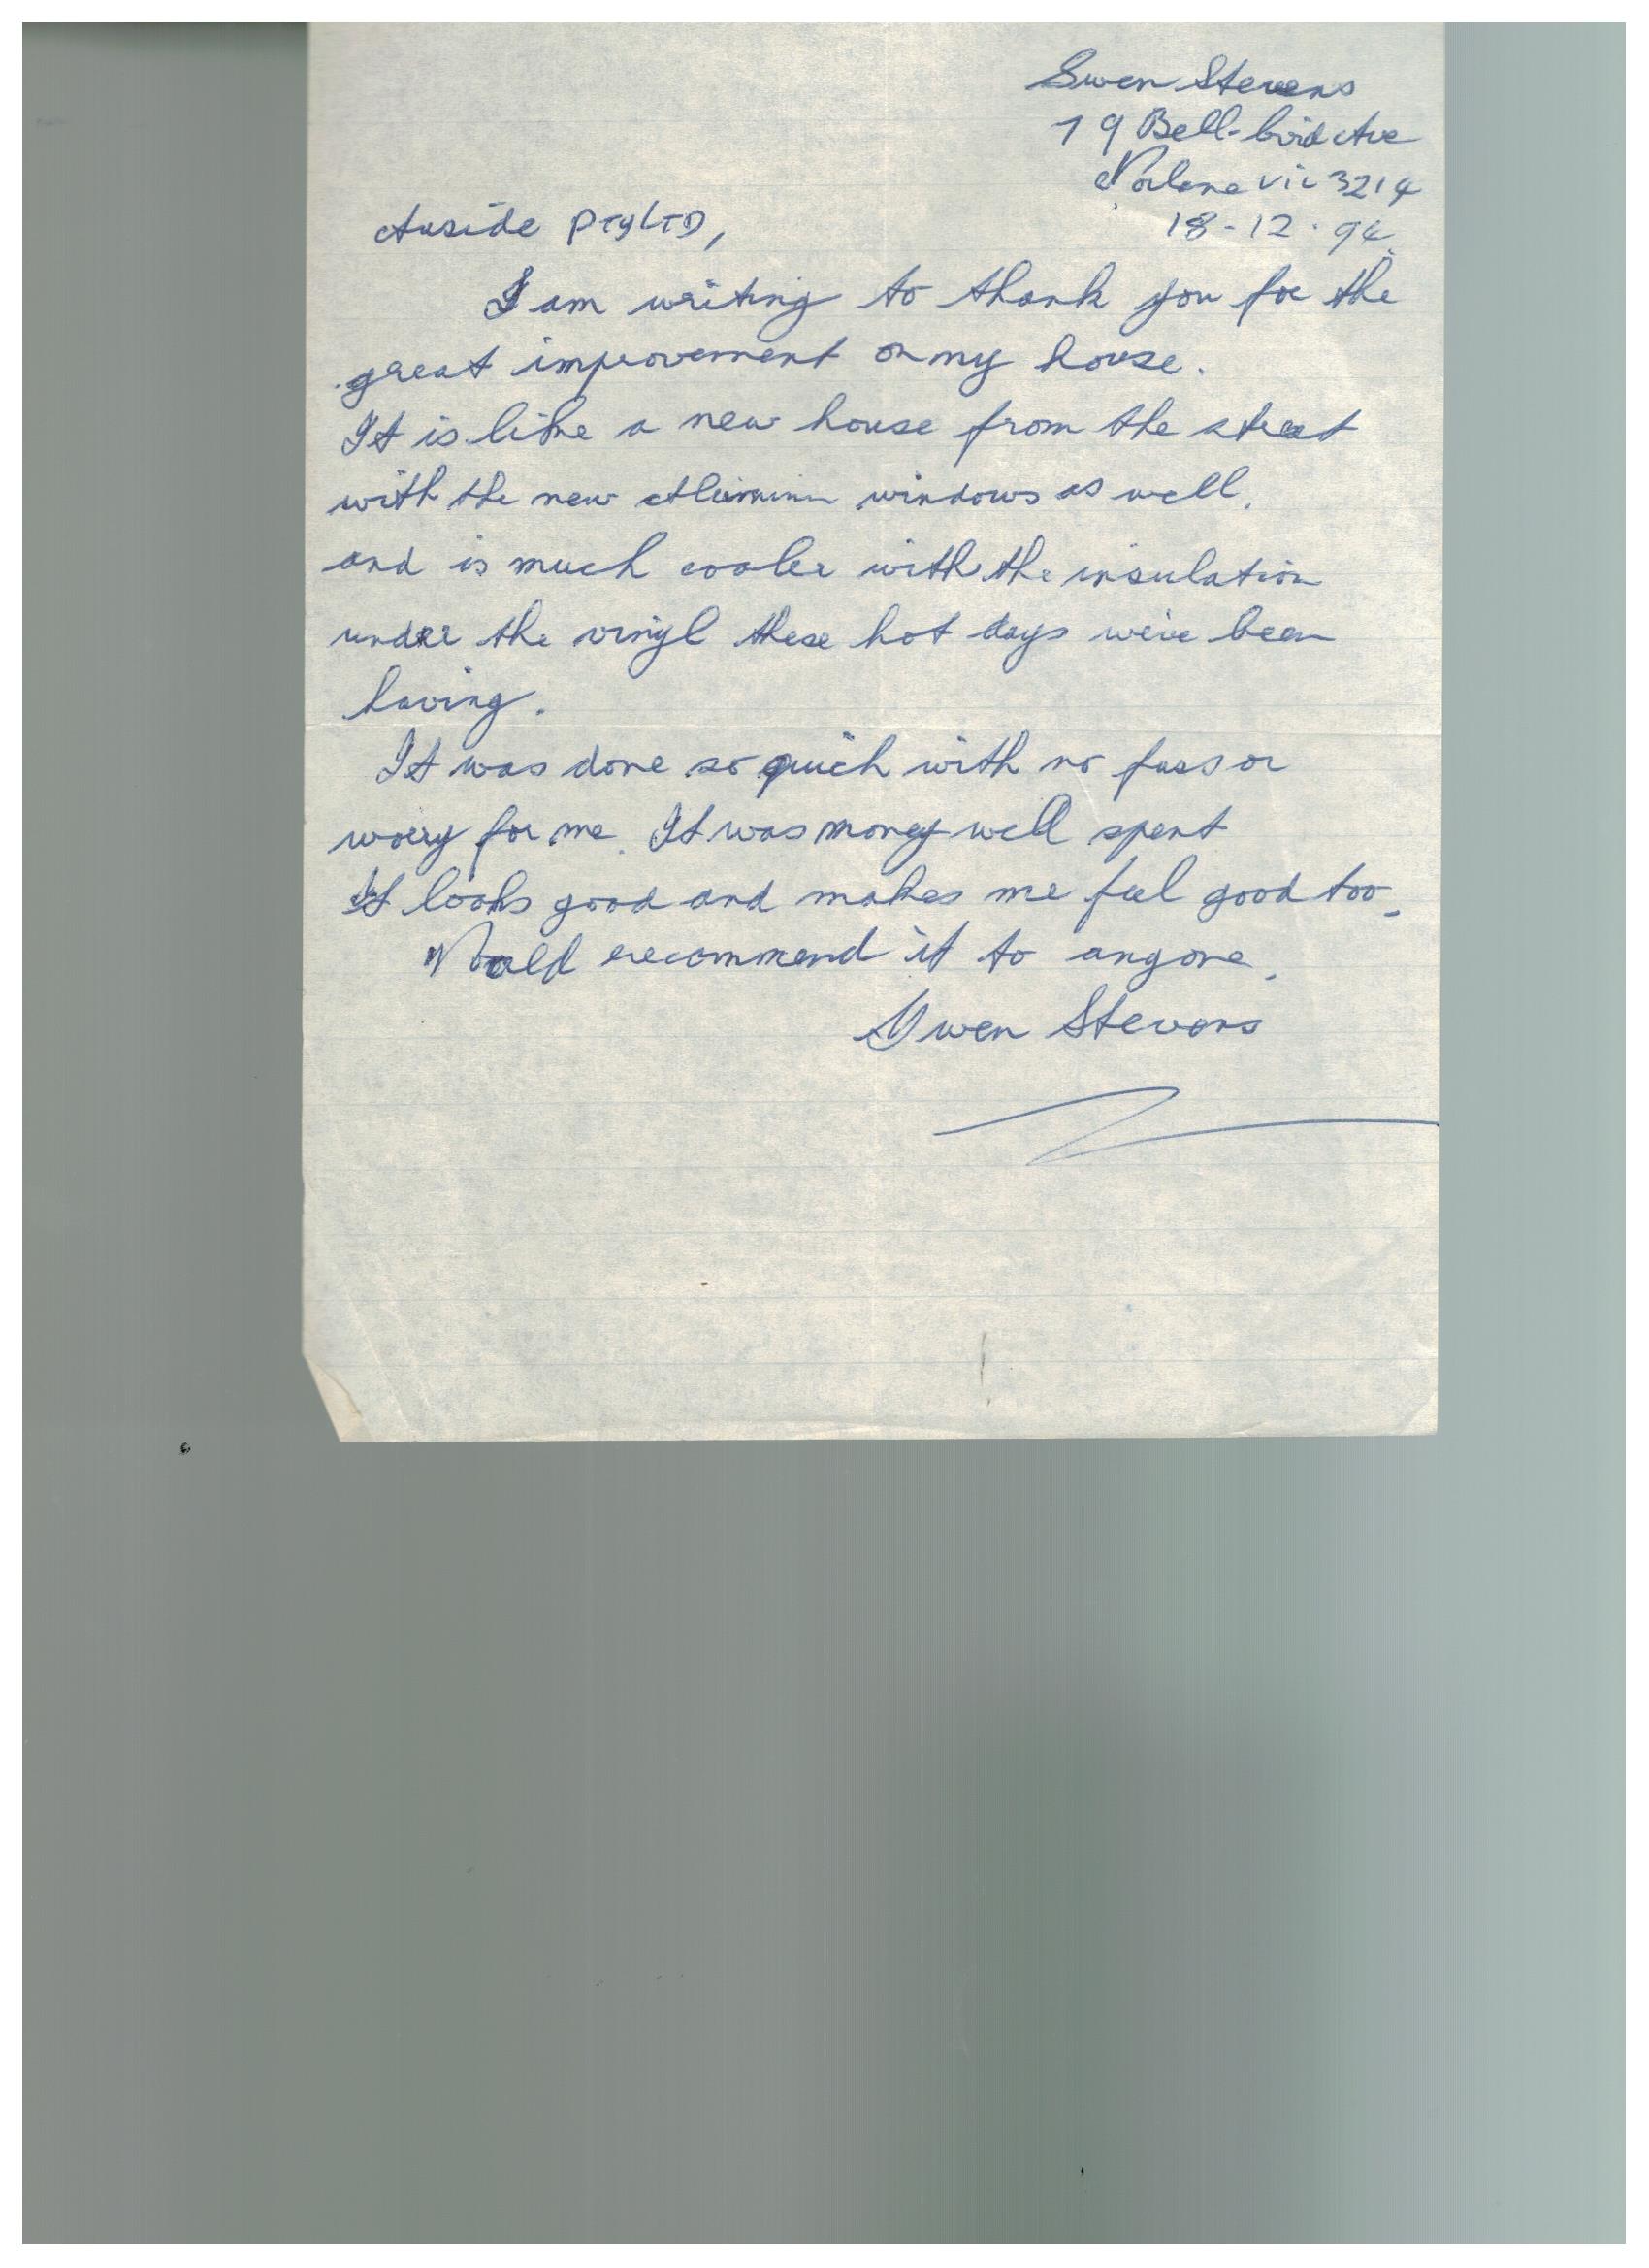 Gwen Stevens
79 Bell-bird Ave
Norlane Vic 3214
18-12-94.
Auside PTY LTD,
I am writing to thank you for the
great improvement on my house.
It is like a new house from the street
with the new Aluminin windows as well.
and is much cooler with the insulation
under the vinyl these hot days we've been
having.
It was done so quick with no fuss or
worry for me. It was money well spent
It looks good and makes me feel good too.
Would recommend it to anyone.
Gwen Stevens